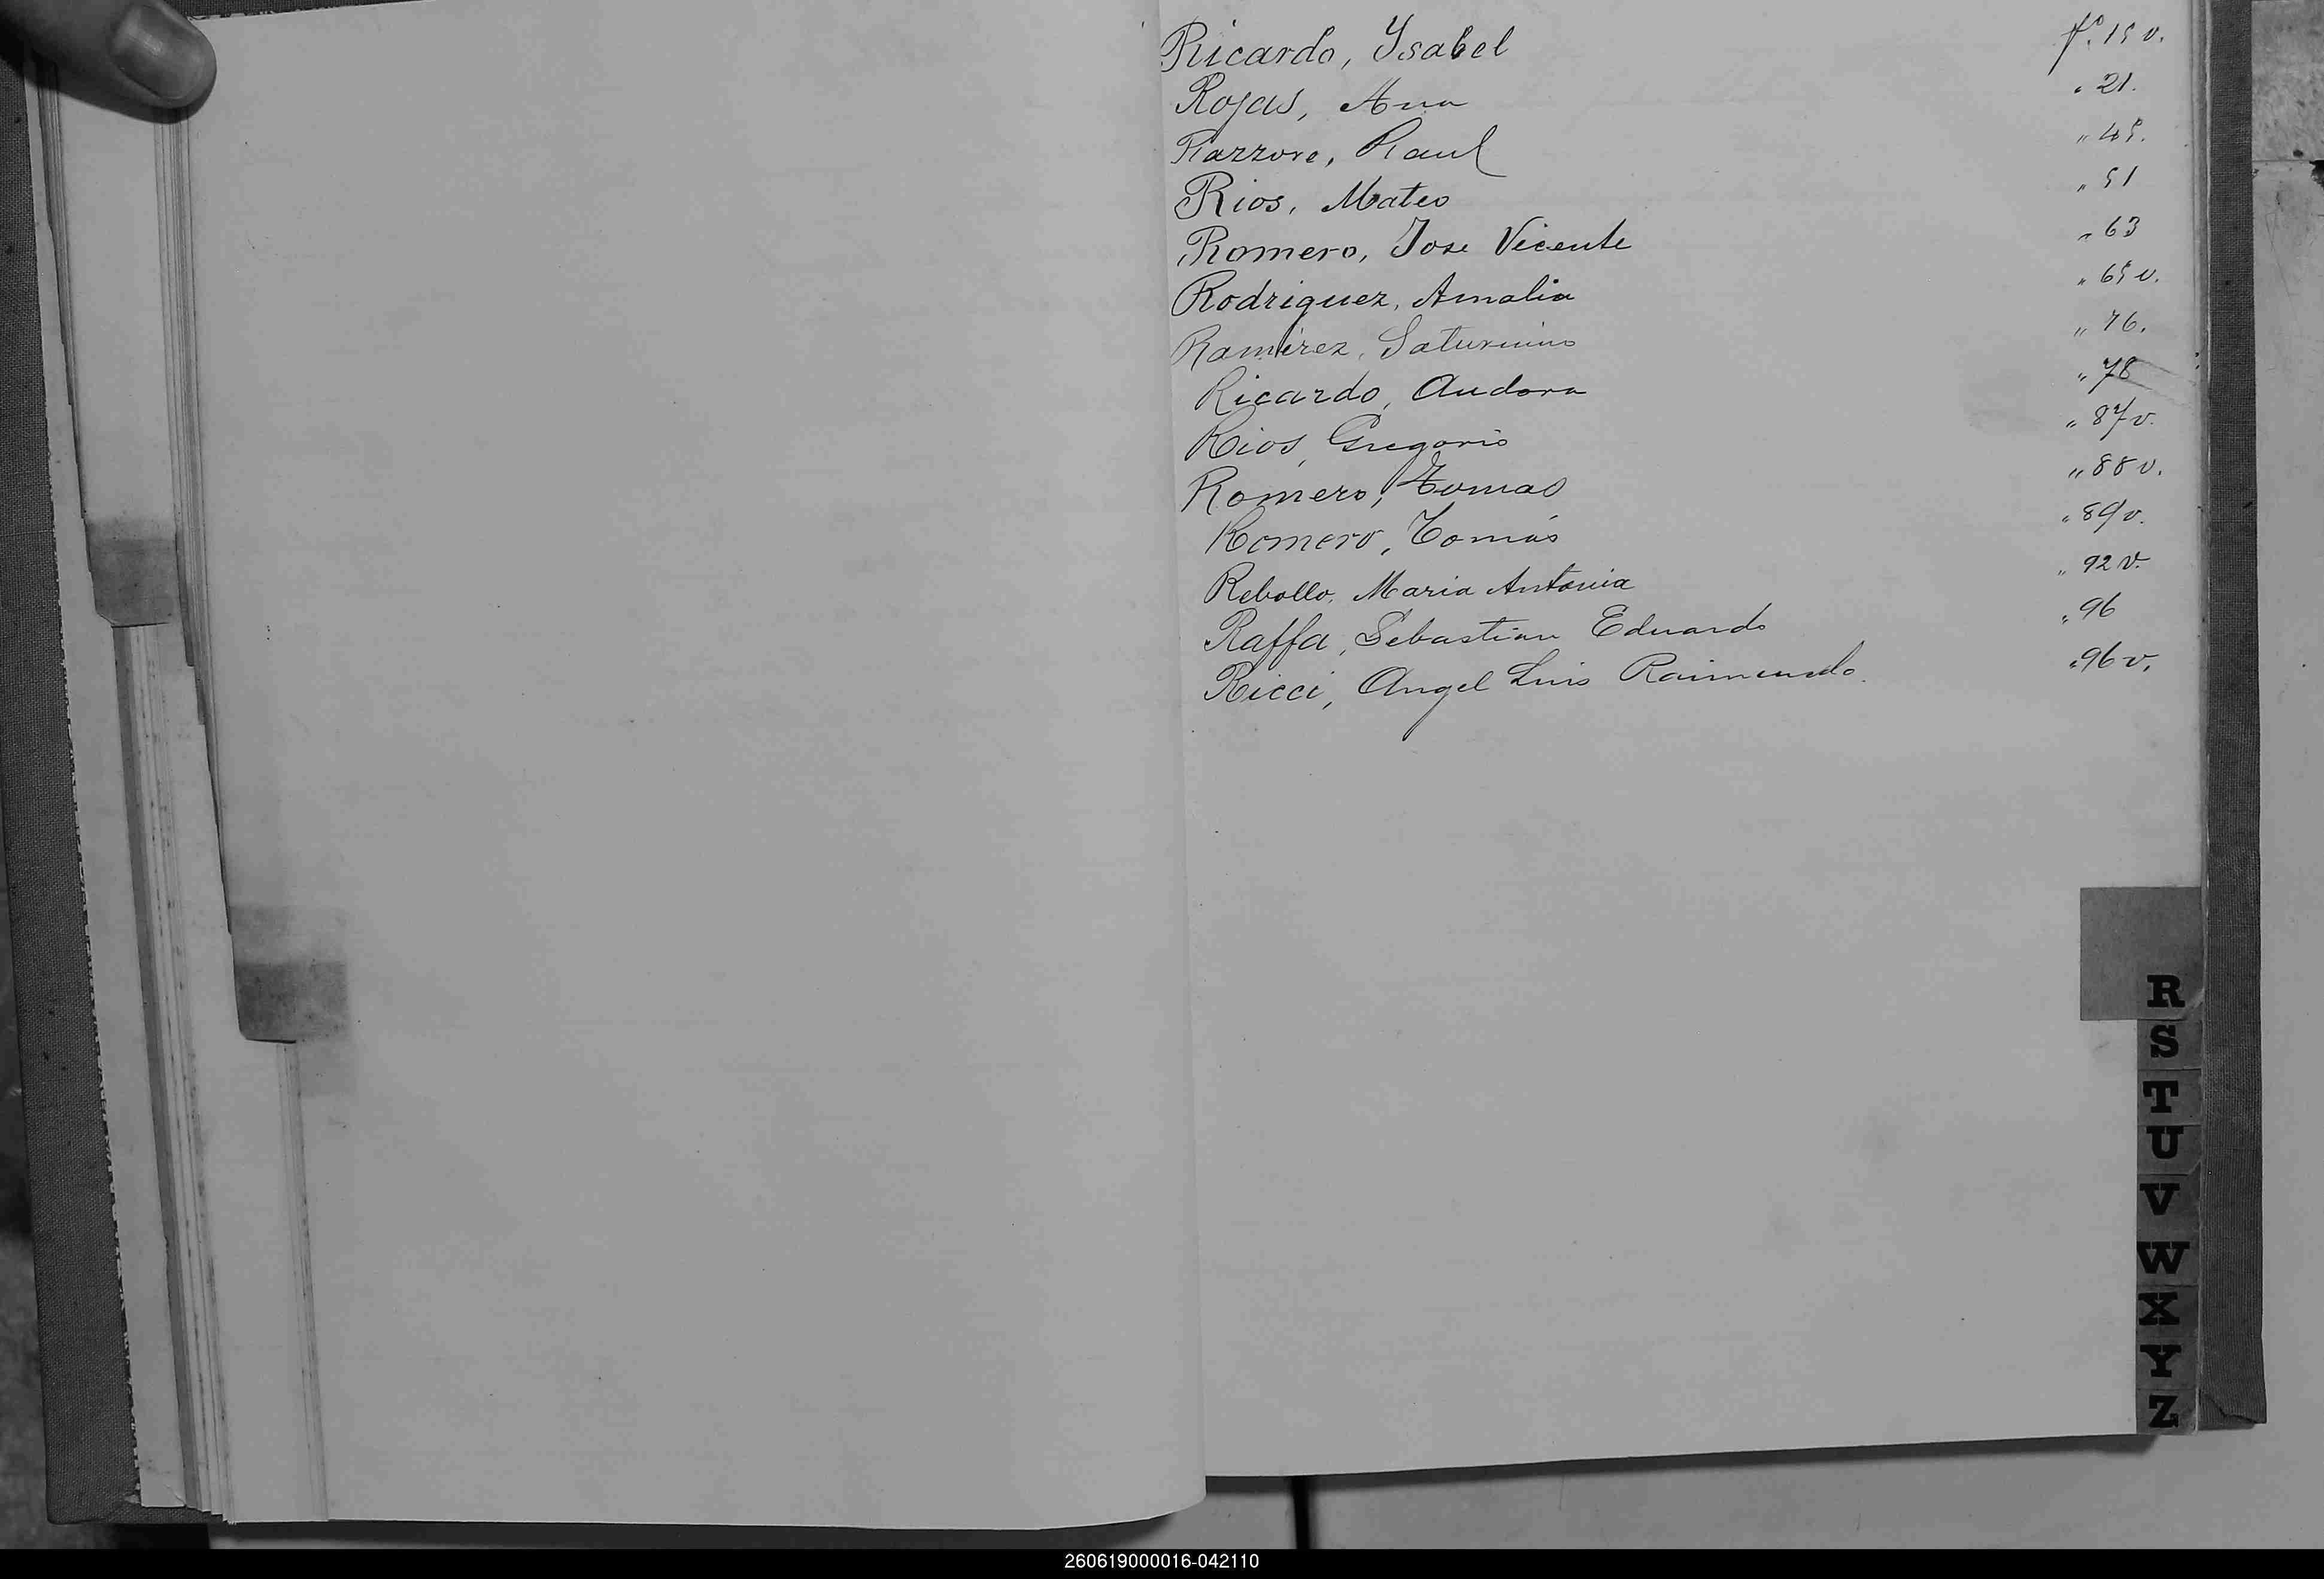 Ricardo, Ysabel fº. 15 v.
Rojas, Ana " 21.
Razzore, Raul " 45.
Rios, Mateo " 51
Romero, Jose Vicente " 63
Rodriguez, Amalia " 65 v.
Ramirez, Saturnino " 76.
Ricardo, Audora " 78
Rios, Gregorio " 87 v.
Romero, Tomas " 88 v.
Romero, Tomás " 89 v.
Rebollo, Maria Antonia " 92 v.
Raffa, Sebastian Eduardo " 96
Ricci, Angel Luis Raimundo. " 96 v.
R
S
T
U
V
W
X
Y
Z
260619000016-042110